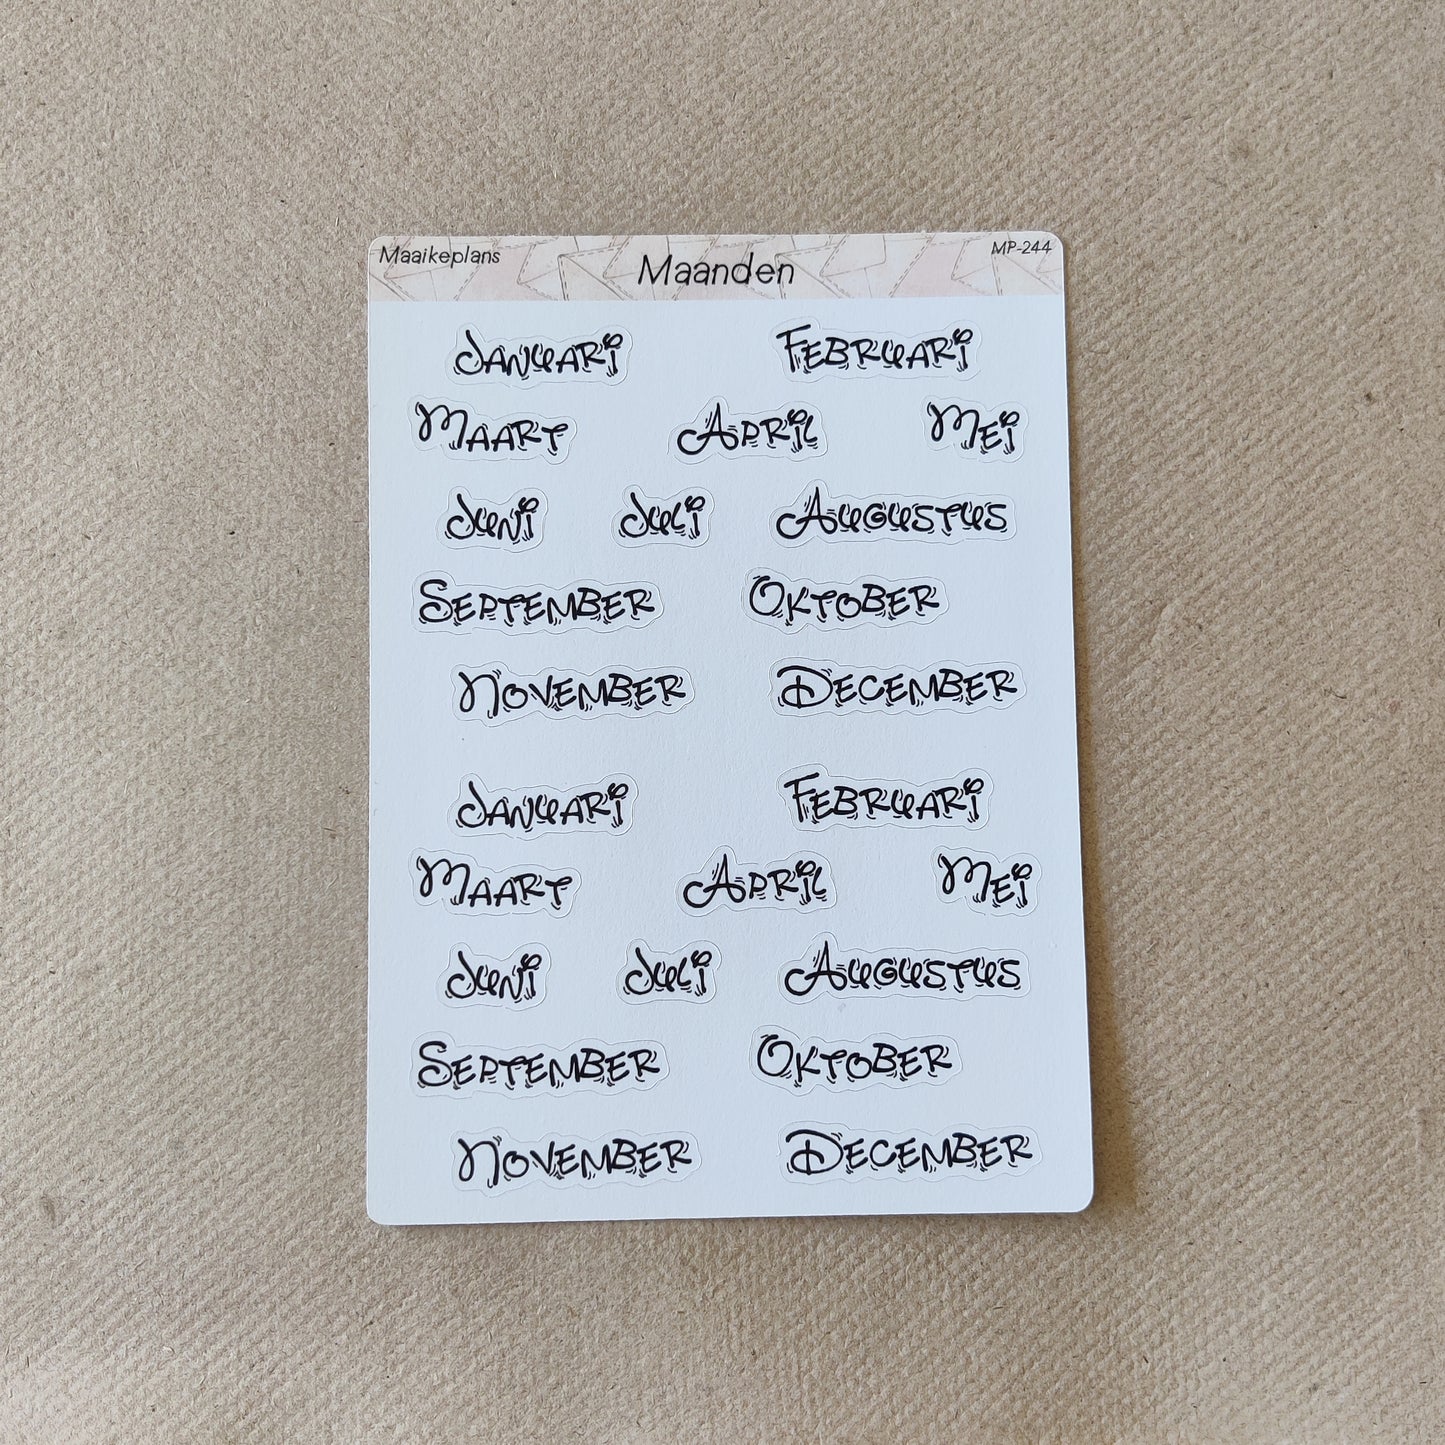 Maaikeplans Maanden MP-244
Januari Februari
Maart April Mei
Juni Juli Augustus
September Oktober
November December
Januari Februari
Maart April Mei
Juni Juli Augustus
September Oktober
November December